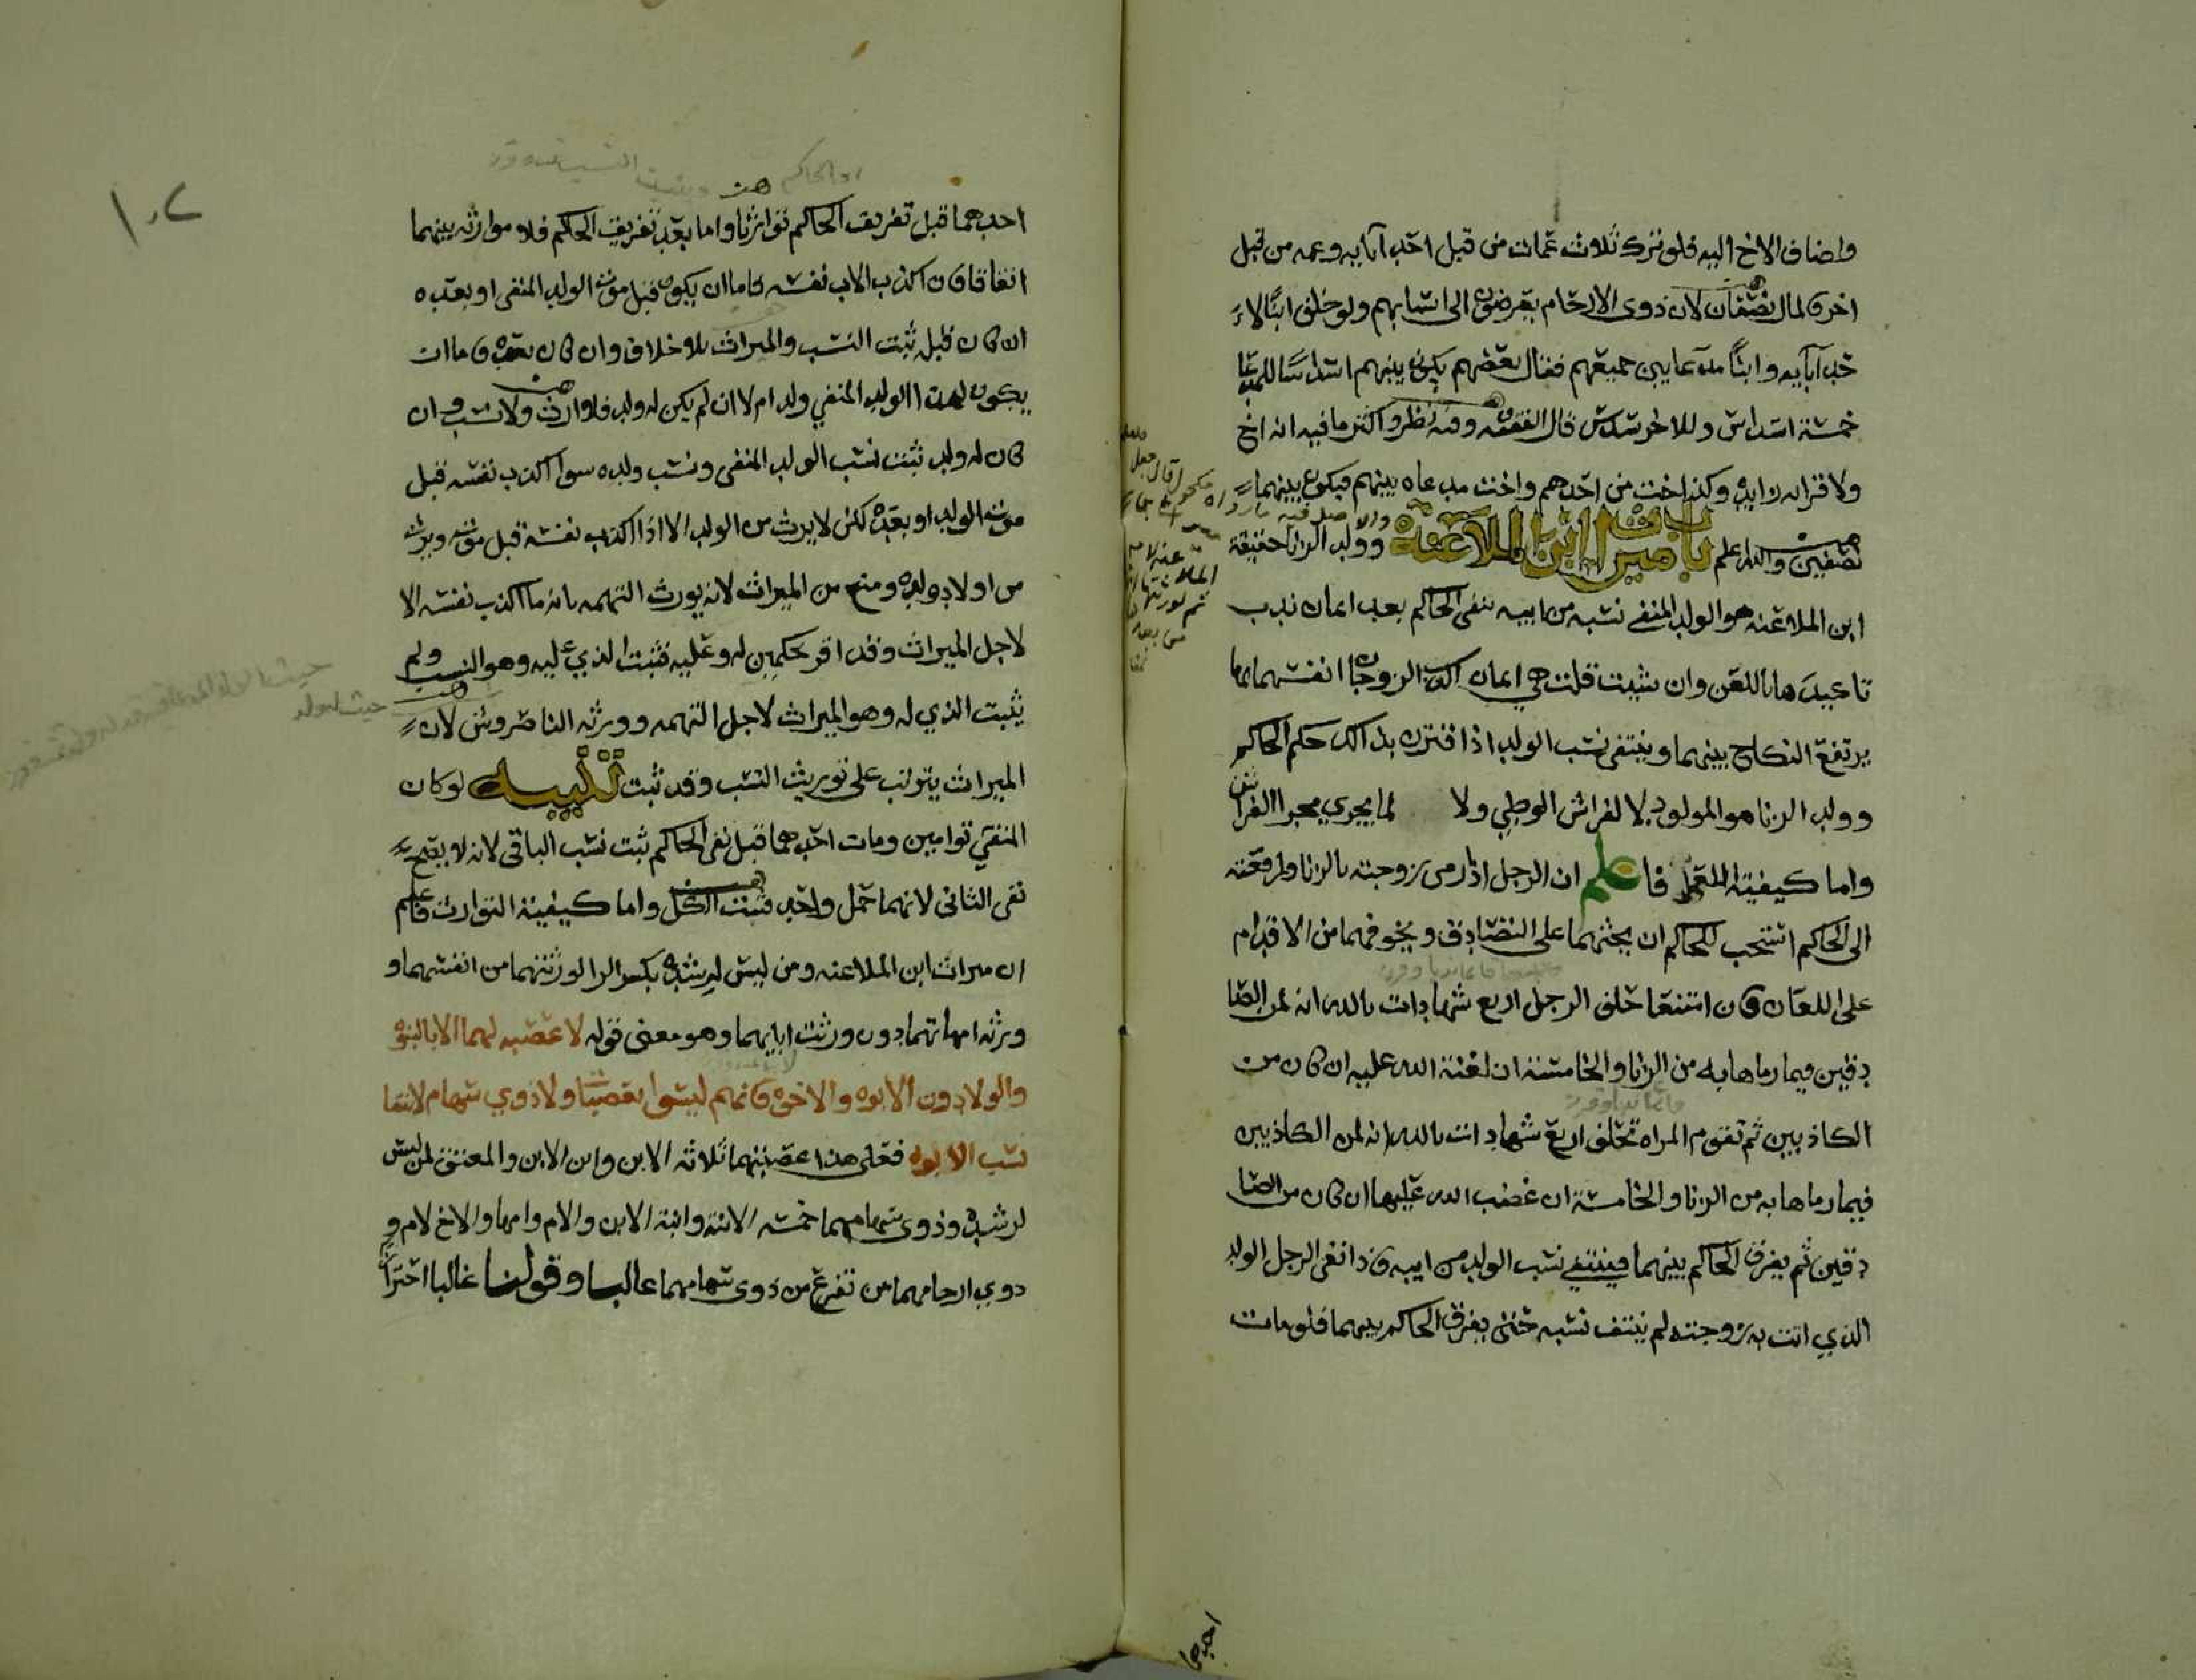 واضاف الاخ اليه فلو ترك ثلاث عمات من قبل احد آبايه وعمه من قبل
اخر فالمال نصفان لان ذوى الارحام يعرضون الى اسبابهم ولو خلف ابنا لاء
حد آبايه وابنا مدعا بين جميعهم فقال بعضهم يكون بينهم اسداسا للمدعا
خمسة اسداس وللاخر سدس قال الفقيه وفيه نظر واكثر ما فيه انه اخ
ولا قرابه لابيه وكذا اخت من احدهم واخت مدعاه بينهم فيكون بينهما
نصفين والله اعلم باب ميراث ابن الملاعنة وولد الزنا حقيقة
ابن الملاعنه هو الولد المنفي نسبه من ابيه بنفي الحاكم بعد ايمان ندب
تاكيدها باللعن وان شيت قلت هي ايمان اكدب الزوجان انفسهما بها
يرتفع النكاح بينهما وينتفى نسب الولد اذا اقترن بذالك حكم الحاكم
وولد الزنا هو المولود لا لفراش الوطي ولا لما يجري مجرا الفراش
واما كيفية اللعان فاعلم ان الرجل اذا رمى زوجته بالزنا ورفعته
الى الحاكم استحب للحاكم ان يحثهما على التصادق ويخوفهما من الاقدام
على اللعان فان امتنعا حلف الرجل اربع شهادات بالله انه لمن الصا
دقين فيما رماها به من الزنا والخامسة ان لعنة الله عليه ان كان من
الكاذبين ثم تقوم المراه تحلف اربع شهادات بالله انه لمن الكاذبين
فيما رماها به من الزنا والخامسة ان غضب الله عليها ان كان من الصا
دقين ثم يفرق الحاكم بينهما فينتفي نسب الولد من ابيه فاذا نفى الرجل الولد
الذي اتت به زوجته لم ينتف نسبه حتى يفرق الحاكم بينهما فلو مات
١٠٢
احدهما قبل تفريق الحاكم توارثا واما بعد تفريق الحاكم فلا موارثه بينهما
اتفاقا فان اكذب الاب نفسه فاما ان يكون قبل موت الولد المنفى او بعده
ان كان قبله ثبت النسب والميراث بلا خلاف وان كان بعده فاما ان
يكون لهذا الولد المنفي ولد ام لا ان لم يكن له ولد فلا ارث ولا نسب وان
كان له ولد ثبت نسب الولد المنفى ونسب ولده سوا اكذب نفسه قبل
موت الولد او بعده لكن لا يرث من الولد الا اذا اكذب نفسه قبل موته ويرث
من اولاد ولده ومنع من الميراث لانه يورث التهمه بانه ما اكذب نفسه الا
لاجل الميراث وقد اقر بحكمين له وعليه فثبت الذي عليه وهو النسب ولم
يثبت الذي له وهو الميراث لاجل التهمه وورثه الناصر وش لان
الميراث يترتب على توريث النسب وقد ثبت تنبيه لو كان
المنفي توامين ومات احدهما قبل نفى الحاكم ثبت نسب الباقى لانه لا يصح
نفى الثانى لانهما حمل واحد فثبت الكل واما كيفية التوارث فاعلم
ان ميراث ابن الملاعنه ومن ليس لرشده بكسر الرا لورثتهما من انفسهما و
ورثه امهاتهما دون ورثت ابايهما وهو معنى قوله لا عصبه لهما الا بالبنوه
والولا دون الابوه والاخوه فانهم ليسوا بعصبات ولا ذوي سهام لانتفا
نسب الابوه فعلى هذا عصبتهما ثلاثه الابن وابن الابن والمعتق لمن ليس
لرشده وذوى سهامهما خمسه الابنه وابنة الابن والام وامها والاخ لام و
ذوي ارحامهما من تفرع من ذوى سهامهما غالبا وقولنا غالبا احترازا
احدهما